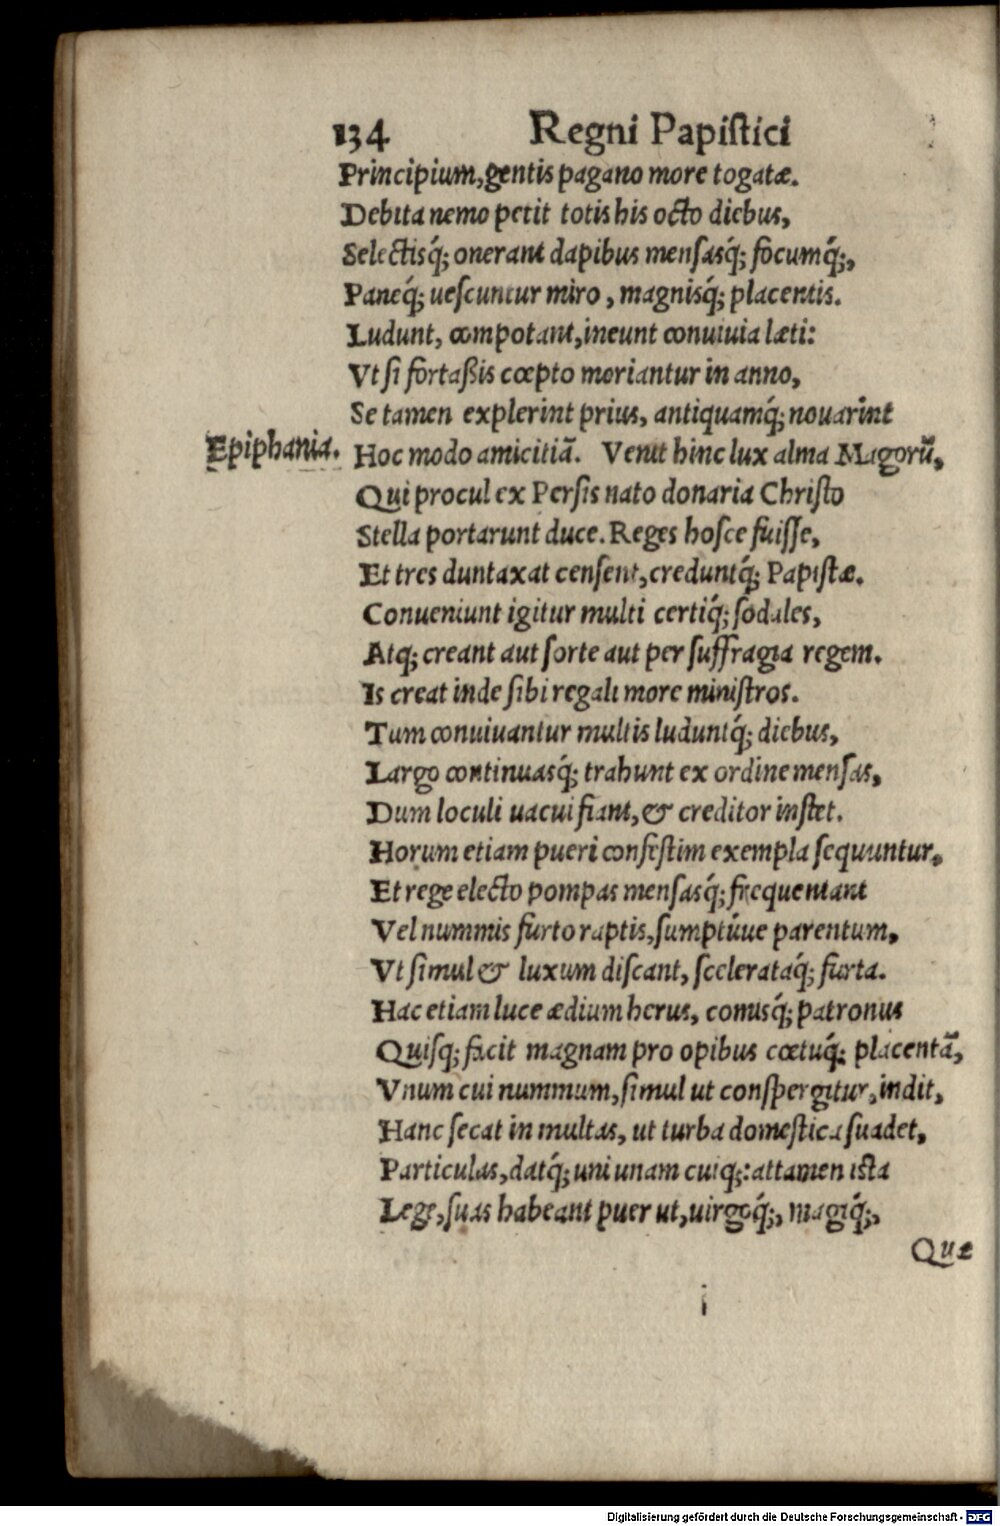 134 Regni Papistici
Principium, gentis pagano more togatæ.
Debita nemo petit totis his octo diebus,
Selectisq́; onerant dapibus mensasq́; focumq́;,
Paneq́; uescuntur miro, magnisq́; placentis.
Ludunt, compotant, ineunt conuiuia læti:
Vt si fortaßis cœpto moriantur in anno,
Se tamen explerint prius, antiquamq́; nouarint
Epiphania. Hoc modo amicitiã. Venit hinc lux alma Magorũ,
Qui procul ex Persis nato donaria Christo
Stella portarunt duce. Reges hosce fuisse,
Et tres duntaxat censent, creduntq́; Papistæ.
Conueniunt igitur multi certiq́; sodales,
Atq; creant aut sorte aut per suffragia regem.
Is creat inde sibi regali more ministros.
Tum conuiuantur multis luduntq́; diebus,
Largo continuasq́; trahunt ex ordine mensas,
Dum loculi uacui fiant, & creditor instet.
Horum etiam pueri confestim exempla sequuntur,
Et rege electo pompas mensasq́; frequentant
Vel nummis furto raptis, sumptúue parentum,
Vt simul & luxum discant, scelerataq́; furta.
Hac etiam luce ædium herus, comisq́; patronus
Quisq; facit magnam pro opibus cœtuq́; placentã,
Vnum cui nummum, simul ut conspergitur, indit,
Hanc secat in multas, ut turba domestica suadet,
Particulas, datq́; uni unam cuiq;: attamen ista
Lege, suas habeant puer ut, uirgoq́;, magiq́;,
Quæ